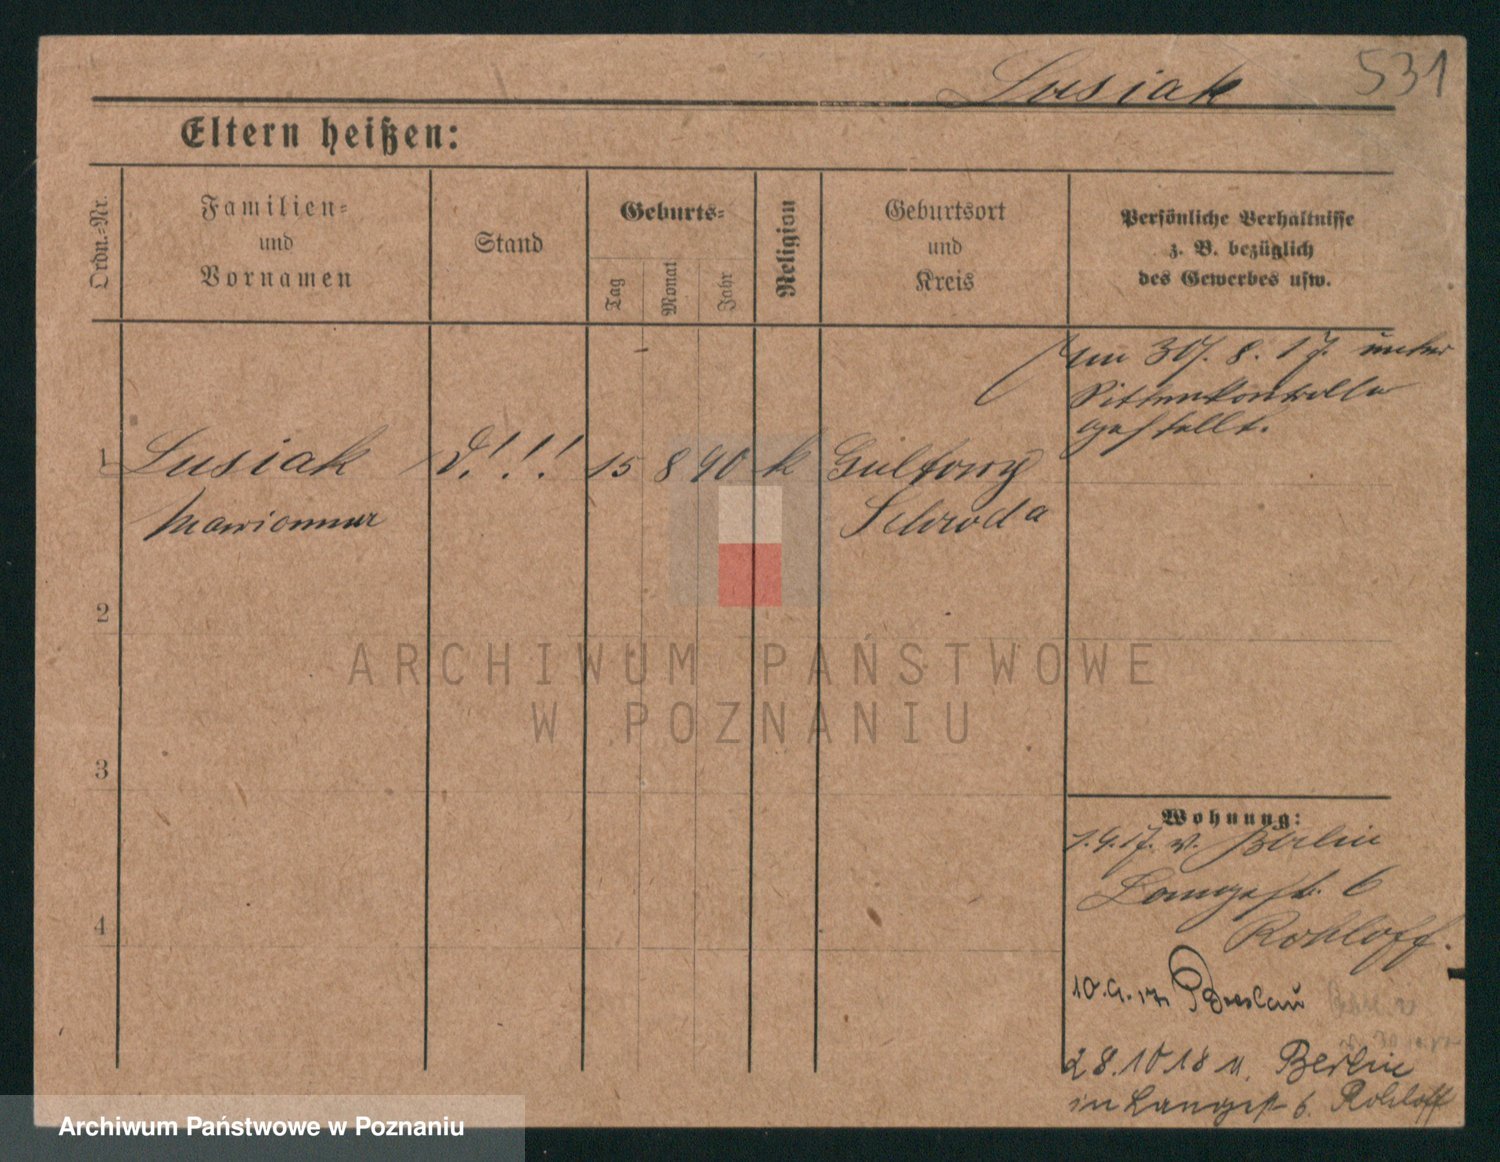 Lusiak
531
Eltern heißen:
Ordn.-Nr.
Familien-
und
Vornamen
Stand
Geburts-
Tag
Monat
Jahr
Religion
Geburtsort
und
Kreis
Persönliche Verhältnisse
z. B. bezüglich
des Gewerbes usw.
am 30. 8. 17. unter
Sittenkontrolle
gestellt.
1 Lusiak d!!! 15 8 90 k Gultowy
Marianna Schroda
2
3
4
ARCHIWUM PAŃSTWOWE
W POZNANIU
Wohnung:
1.9.17. v. Berlin
Langestr. 6
Rohloff.
10.9.17 Breslau
28.10.18 n. Berlin
in Langestr 6. Rohloff
Archiwum Państwowe w Poznaniu